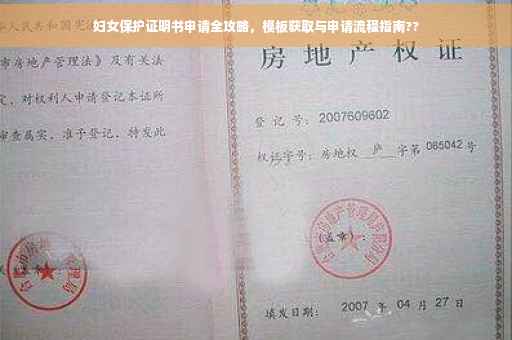 妇女保护证明书申请全攻略，模板获取与申请流程指南??
人民共和国宪
市房地产管理法》及有关法
定，对权利人申请登记本证所
审查属实，准予登记，特发此
房地产权证
登记号：2007609602
权证字号：房地权 庐 字第 085042 号
（盖章）：
填发日期：2007 年 04 月 27 日